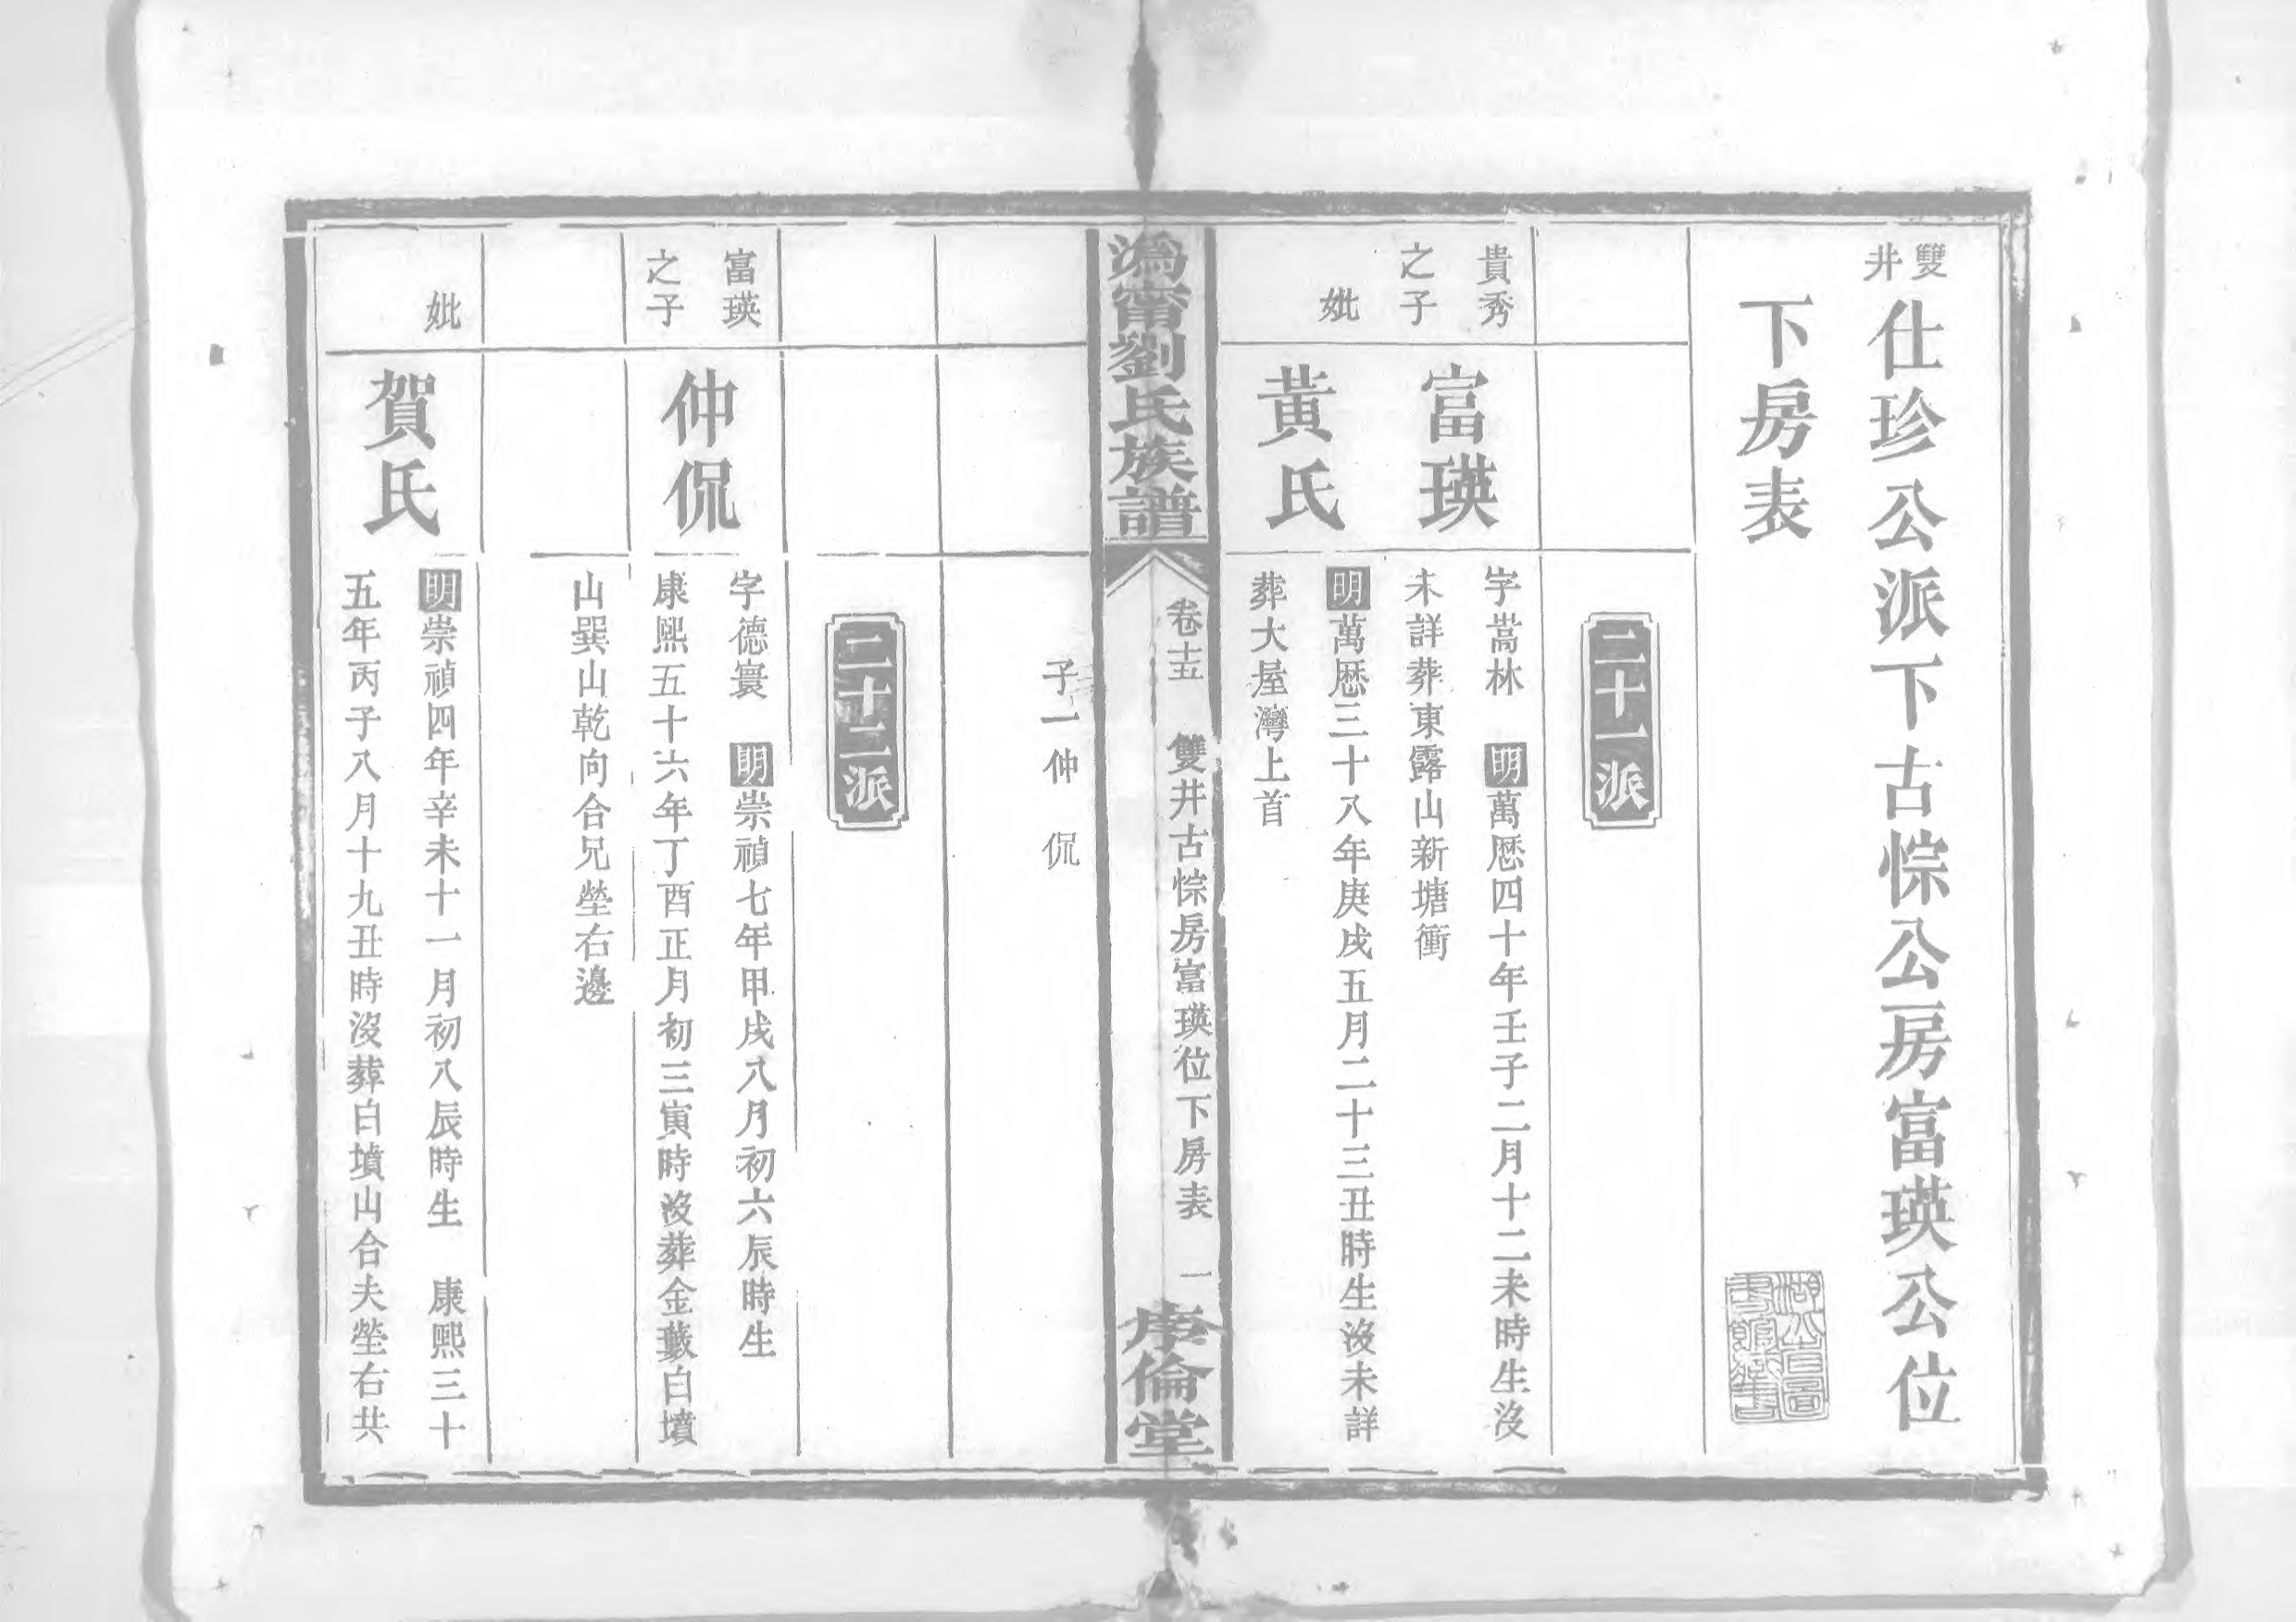 雙井
仕珍公派下古悰公房富瑛公位
下房表
二十一派
貴秀
之子
富瑛
字蒿林 明萬厯四十年壬子二月十二未時生沒
未詳葬東露山新塘衝
妣
黃氏
明萬厯三十八年庚戌五月二十三丑時生沒未詳
葬大屋灣上首
溈甯劉氏族譜
卷十五 雙井古悰房富瑛位下房表 一
序倫堂
子一仲侃
二十二派
富瑛
之子
仲侃
字德寰 明崇禎七年甲戌八月初六辰時生
康熙五十六年丁酉正月初三寅時沒葬金藪白墳
山巽山乾向合兄塋右邊
妣
賀氏
明崇禎四年辛未十一月初八辰時生 康熙三十
五年丙子八月十九丑時沒葬白墳山合夫塋右共